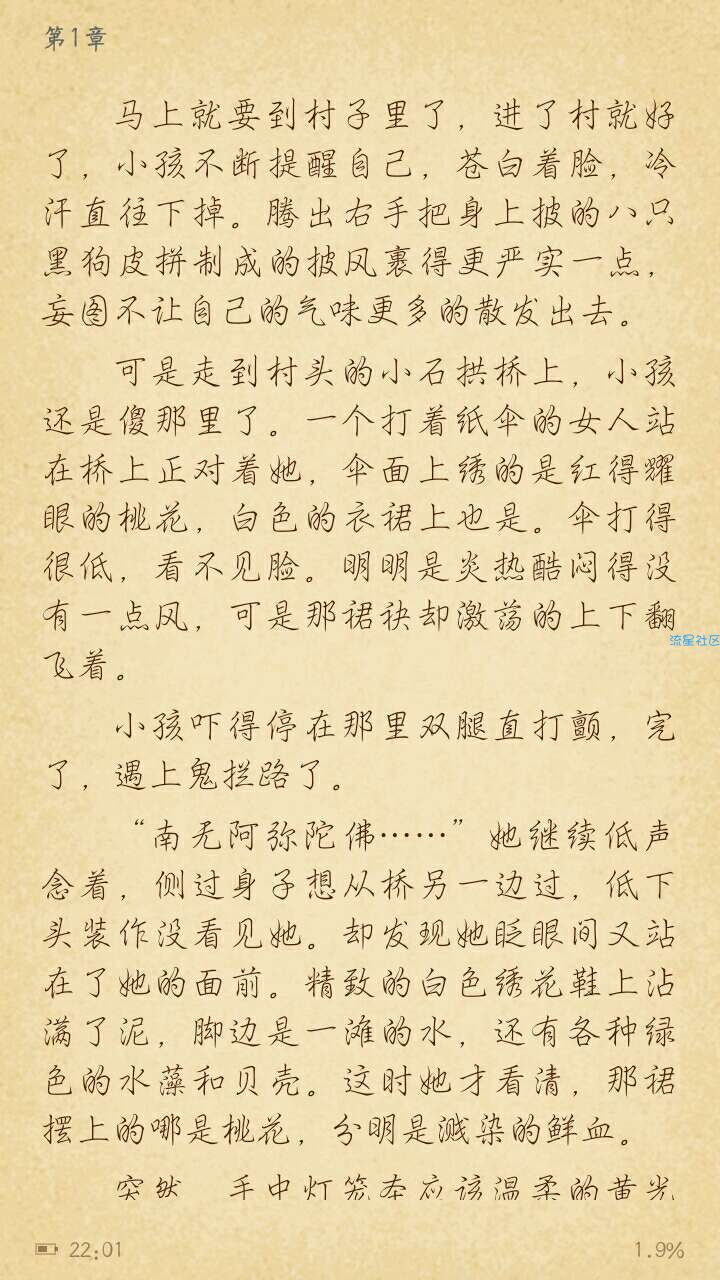 第1章
马上就要到村子里了，进了村就好
了，小孩不断提醒自己，苍白着脸，冷
汗直往下掉。腾出右手把身上披的八只
黑狗皮拼制成的披风裹得更严实一点，
妄图不让自己的气味更多的散发出去。
可是走到村头的小石拱桥上，小孩
还是傻那里了。一个打着纸伞的女人站
在桥上正对着她，伞面上绣的是红得耀
眼的桃花，白色的衣裙上也是。伞打得
很低，看不见脸。明明是炎热酷闷得没
有一点风，可是那裙袂却激荡的上下翻
飞着。
流星社区
小孩吓得停在那里双腿直打颤，完
了，遇上鬼拦路了。
“南无阿弥陀佛……”她继续低声
念着，侧过身子想从桥另一边过，低下
头装作没看见她。却发现她眨眼间又站
在了她的面前。精致的白色绣花鞋上沾
满了泥，脚边是一滩的水，还有各种绿
色的水藻和贝壳。这时她才看清，那裙
摆上的哪是桃花，分明是溅染的鲜血。
突然 手中灯笼本应该温柔的黄光
22:01
1.9%